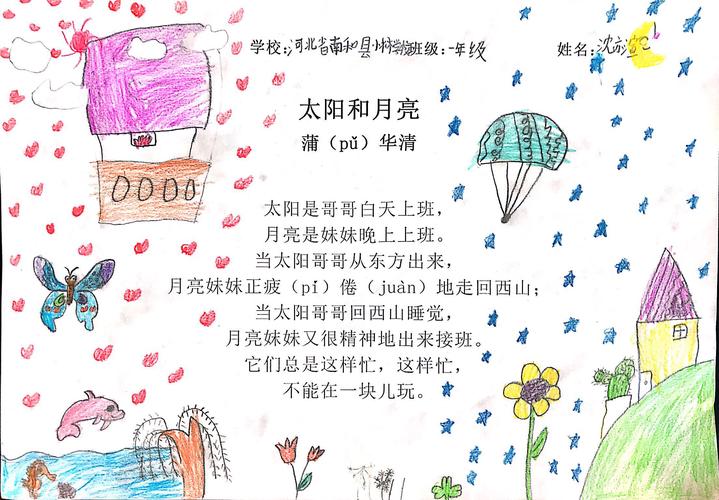 学校:河北省南和县小 班级:一年级 姓名:沈
太阳和月亮
蒲（pǔ）华清
太阳是哥哥白天上班，
月亮是妹妹晚上上班。
当太阳哥哥从东方出来，
月亮妹妹正疲（pí）倦（juàn）地走回西山；
当太阳哥哥回西山睡觉，
月亮妹妹又很精神地出来接班。
它们总是这样忙，这样忙，
不能在一块儿玩。